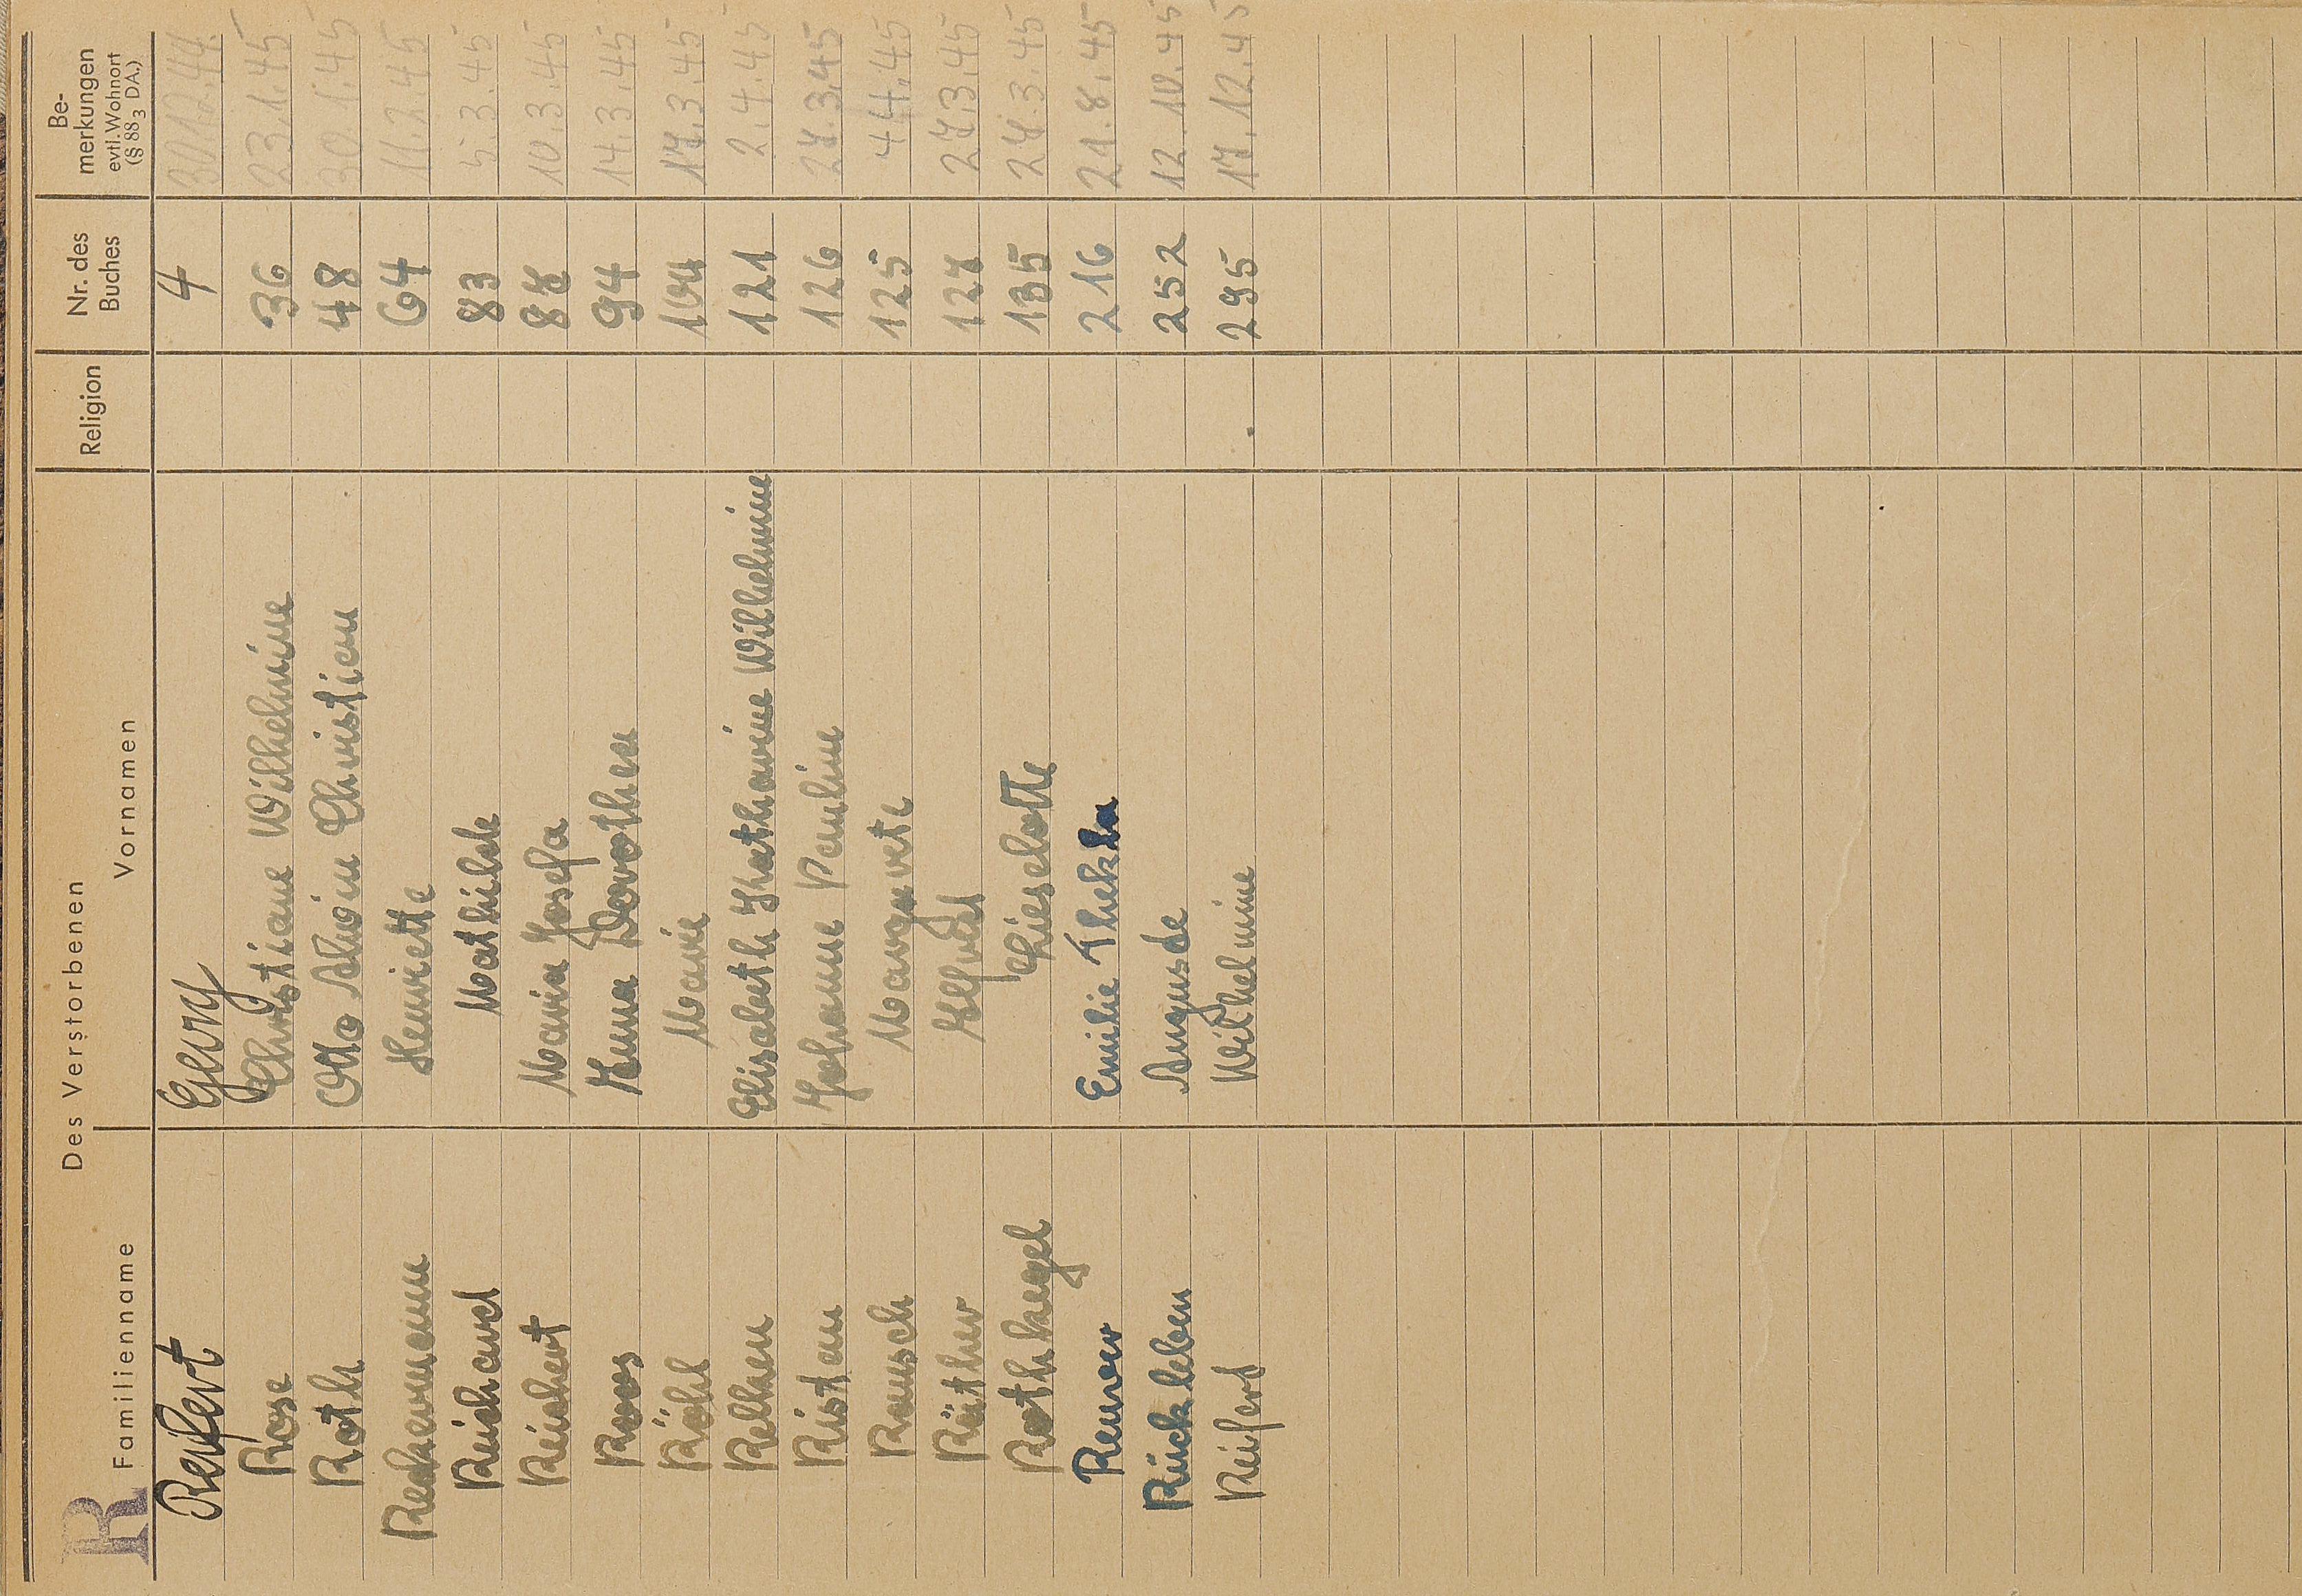 R
Des Verstorbenen
Familienname Vornamen Religion Nr. des Buches Be-merkungen evtl. Wohnort (§ 88 3 DA.)
Reifert Gerry 4 30.12.44.
Rose Christiane Wilhelmine 36 23.1.45
Roth Otto Alwin Christian 48 30.1.45
Henriette 64 11.2.45
Reichard Mathilde 83 5.3.45
Reichert Maria Josefa 87 10.3.45
Roos Emma Dorothea 94 14.3.45
Röhl Marie 104 17.3.45
Elisabeth Katharine Wilhelmine 121 2.4.45
Ristau Johanne Pauline 126 27.3.45
Rausch Margarete 125 4.4.45
Räther 127 27.3.45
Rothkegel Lieselotte 135 27.3.45
Renner Emilie Thekla 216 21.8.45
Rückleben Auguste 252 12.10.45
Reifert Wilhelmine 295 17.12.45